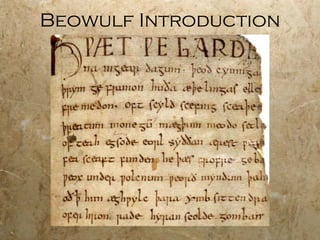 Beowulf Introduction
HǷÆT ǷE GARDE
na ingear dagum. þeod cyninga
þrym ge frunon huða æþelingas elle
fremedon. oft scyld scefing sceaþe
þreatum monegū mægþum meodo setl
of teah egsode eorl syððan ærest ƿe
fea sceaft funden he þæs frofre geba
ƿeox under ƿolcnum ƿeord myndum þah
oð þ him æghƿylc þara ymb sittendra
ofer hron rade hyran scolde gomban